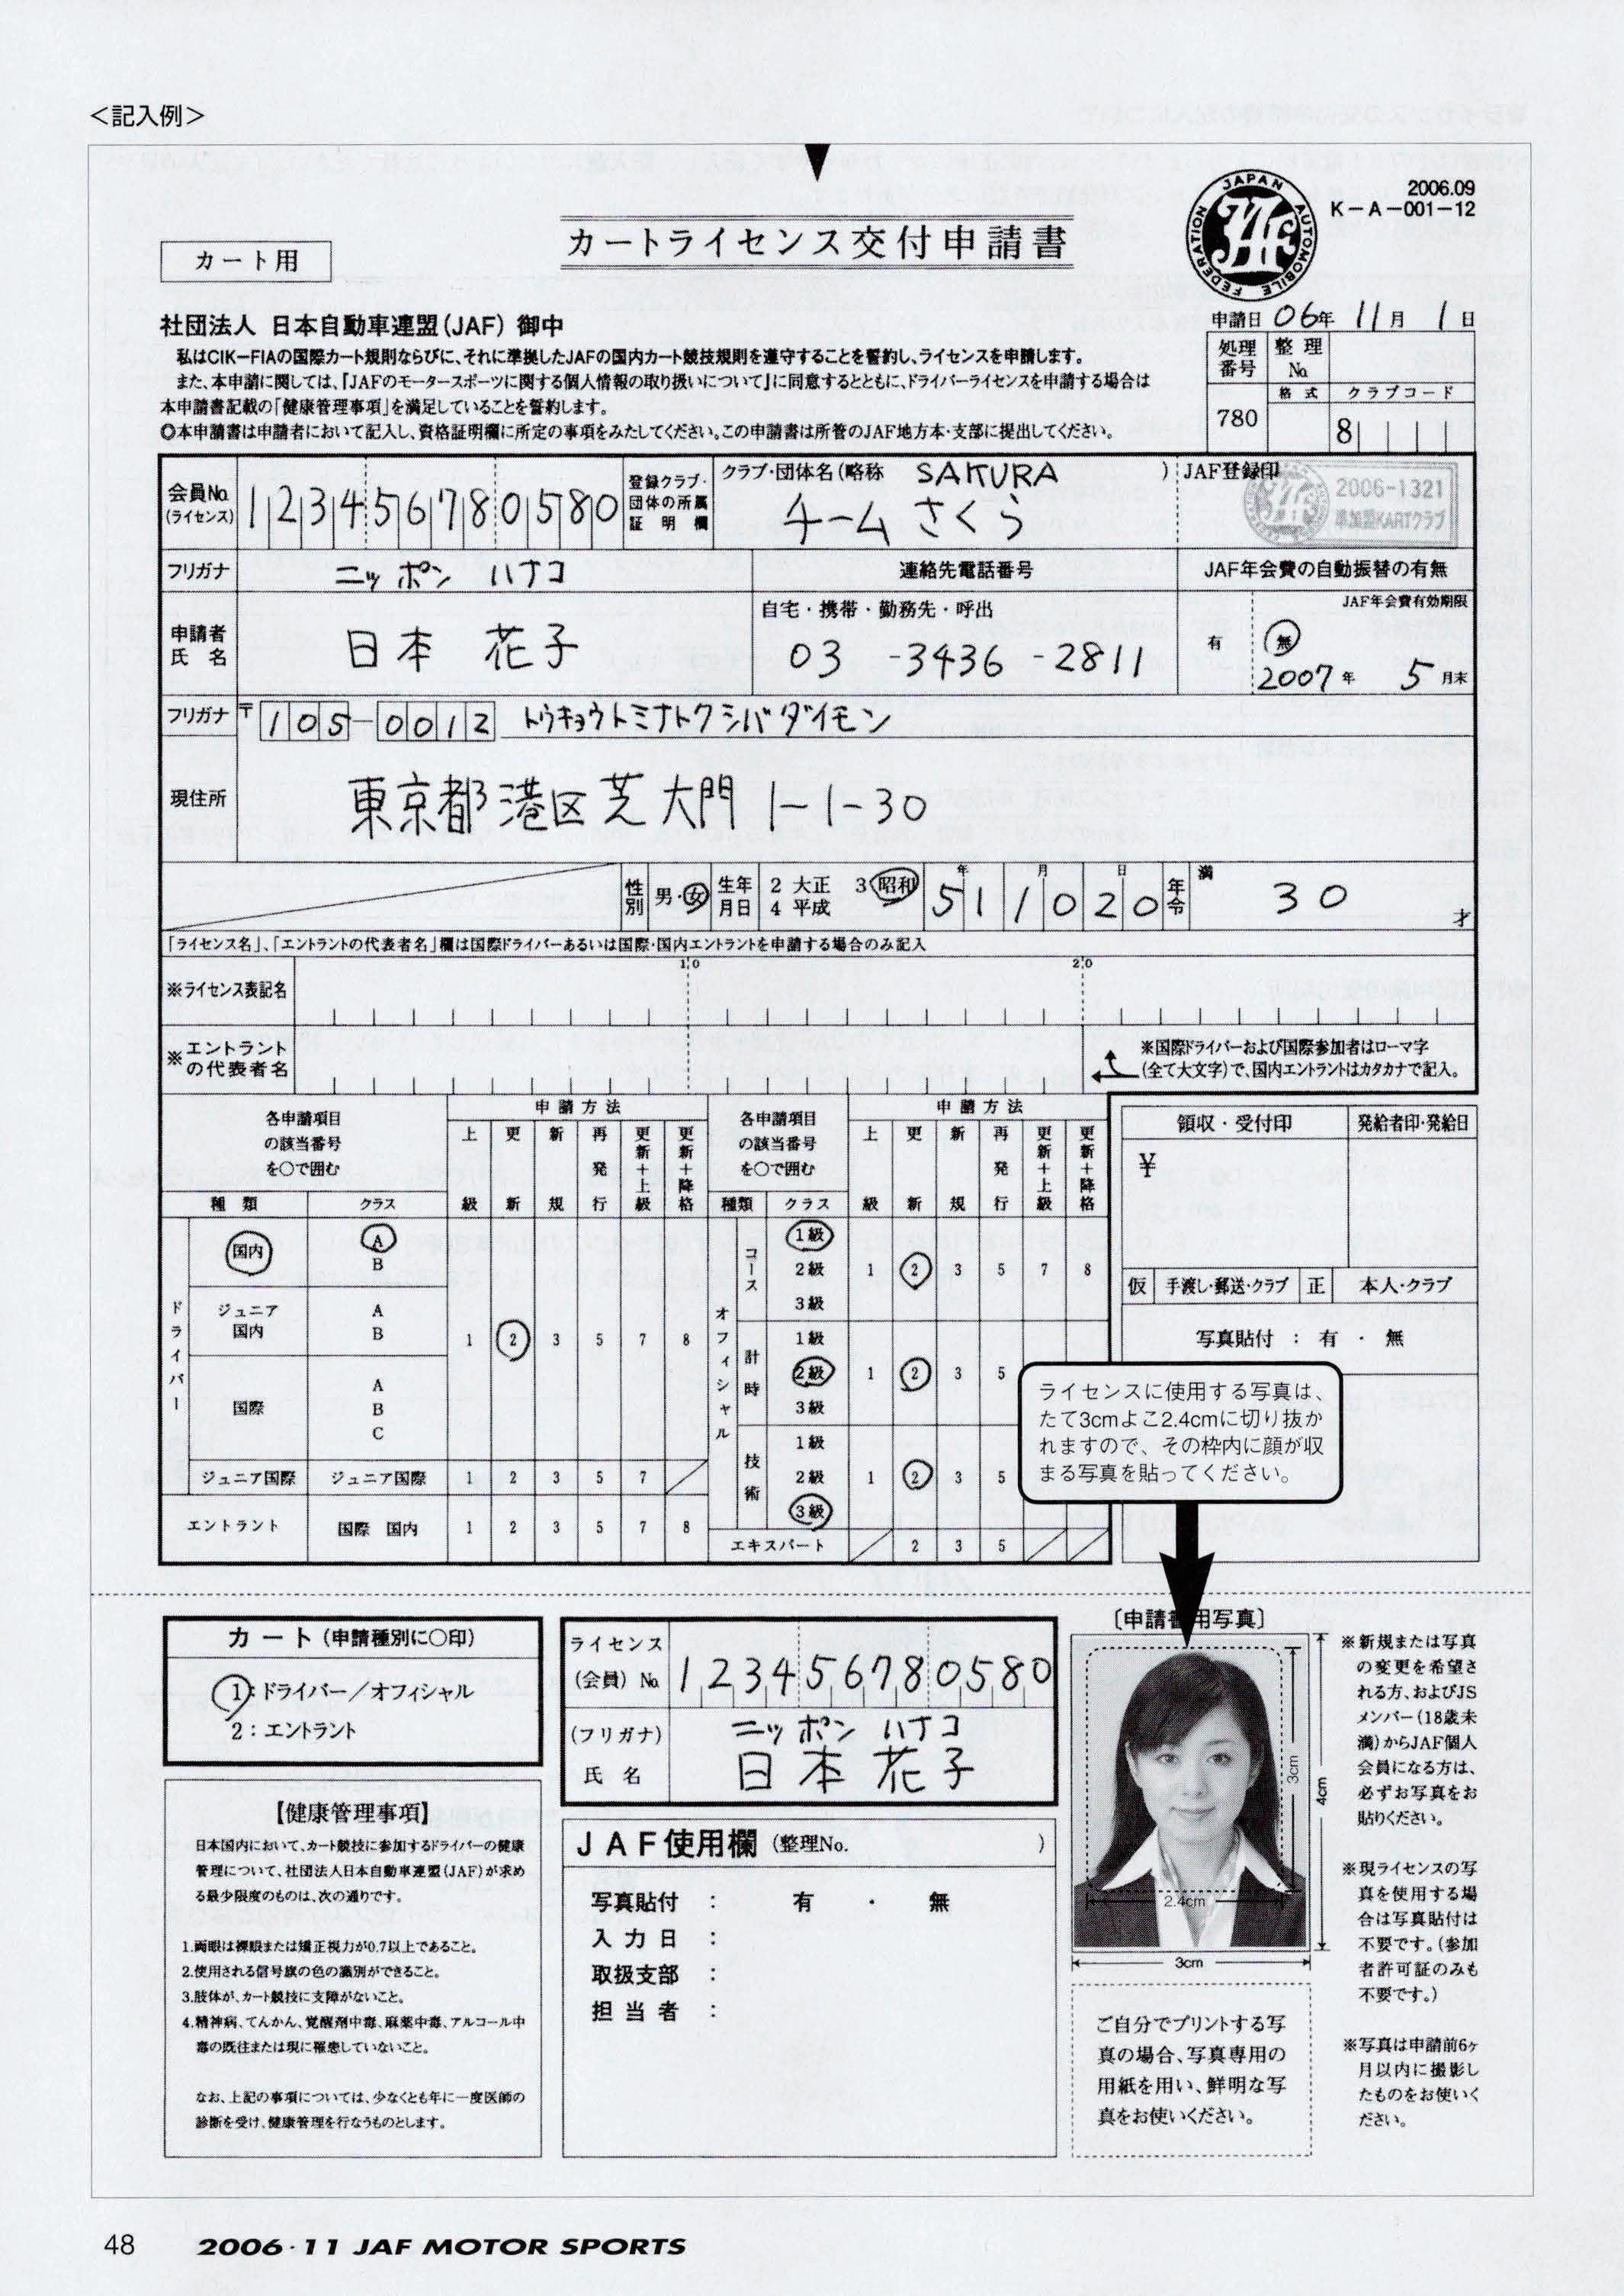 <記入例>
JAPAN AUTOMOBILE FEDERATION
JAF
2006.09
K-A-001-12
カート用
カートライセンス交付申請書
申請日 06年 11月 1日
社団法人 日本自動車連盟(JAF) 御中
私はCIK-FIAの国際カート規則ならびに、それに準拠したJAFの国内カート競技規則を遵守することを誓約し、ライセンスを申請します。
また、本申請に関しては、「JAFのモータースポーツに関する個人情報の取り扱いについて」に同意するとともに、ドライバーライセンスを申請する場合は
本申請書記載の「健康管理事項」を満足していることを誓約します。
◎本申請書は申請者において記入し、資格証明欄に所定の事項をみたしてください。この申請書は所管のJAF地方本・支部に提出してください。
処理番号 整理No.
780 格式 クラブコード
8
会員No.(ライセンス) 123456780580
登録クラブ・団体の所属証明欄
クラブ・団体名(略称 SAKURA )
チームさくら
JAF登録印
2006-1321
準加盟KARTクラブ
フリガナ ニッポン ハナコ
連絡先電話番号
JAF年会費の自動振替の有無
申請者氏名 日本 花子
自宅・携帯・勤務先・呼出
03-3436-2811
有 無
JAF年会費有効期限
2007年 5月末
フリガナ 〒105-0012 トウキョウトミナトクシバダイモン
現住所 東京都港区芝大門1-1-30
性別 男・女 生年月日 2 大正 3 昭和 4 平成 51年10月20日 年令 満 30才
「ライセンス名」、「エントラントの代表者名」欄は国際ドライバーあるいは国際・国内エントラントを申請する場合のみ記入
※ライセンス表記名 10 20
※エントラントの代表者名
※国際ドライバーおよび国際参加者はローマ字
(全て大文字)で、国内エントラントはカタカナで記入。
各申請項目の該当番号を○で囲む
申請方法
種類 クラス 上級 更新 新規 再発行 更新+上級 更新+降格
ドライバー
国内 A B
ジュニア国内 A B
国際 A B C
1 2 3 5 7 8
ジュニア国際 ジュニア国際 1 2 3 5 7
エントラント 国際 国内 1 2 3 5 7 8
各申請項目の該当番号を○で囲む
申請方法
種類 クラス 上級 更新 新規 再発行 更新+上級 更新+降格
オフィシャル
コース 1級 2級 3級 1 2 3 5 7 8
計時 1級 2級 3級 1 2 3 5
技術 1級 2級 3級 1 2 3 5
エキスパート 2 3 5
領収・受付印 発給者印・発給日
¥
仮 手渡し・郵送・クラブ 正 本人・クラブ
写真貼付 : 有 ・ 無
ライセンスに使用する写真は、
たて3cmよこ2.4cmに切り抜か
れますので、その枠内に顔が収
まる写真を貼ってください。
カート(申請種別に○印)
1:ドライバー/オフィシャル
2:エントラント
ライセンス(会員)No. 123456780580
(フリガナ) ニッポン ハナコ
氏名 日本花子
【健康管理事項】
日本国内において、カート競技に参加するドライバーの健康
管理について、社団法人日本自動車連盟(JAF)が求め
る最少限度のものは、次の通りです。
1.両眼は裸眼または矯正視力が0.7以上であること。
2.使用される信号旗の色の識別ができること。
3.肢体が、カート競技に支障がないこと。
4.精神病、てんかん、覚醒剤中毒、麻薬中毒、アルコール中
毒の既往または現に罹患していないこと。
なお、上記の事項については、少なくとも年に一度医師の
診断を受け、健康管理を行なうものとします。
JAF使用欄(整理No. )
写真貼付 : 有 ・ 無
入力日 :
取扱支部 :
担当者 :
〔申請書用写真〕
3cm
4cm
2.4cm
3cm
ご自分でプリントする写
真の場合、写真専用の
用紙を用い、鮮明な写
真をお使いください。
※新規または写真
の変更を希望さ
れる方、およびJS
メンバー(18歳未
満)からJAF個人
会員になる方は、
必ずお写真をお
貼りください。
※現ライセンスの写
真を使用する場
合は写真貼付は
不要です。(参加
者許可証のみも
不要です。)
※写真は申請前6ヶ
月以内に撮影し
たものをお使いく
ださい。
48 2006・11 JAF MOTOR SPORTS